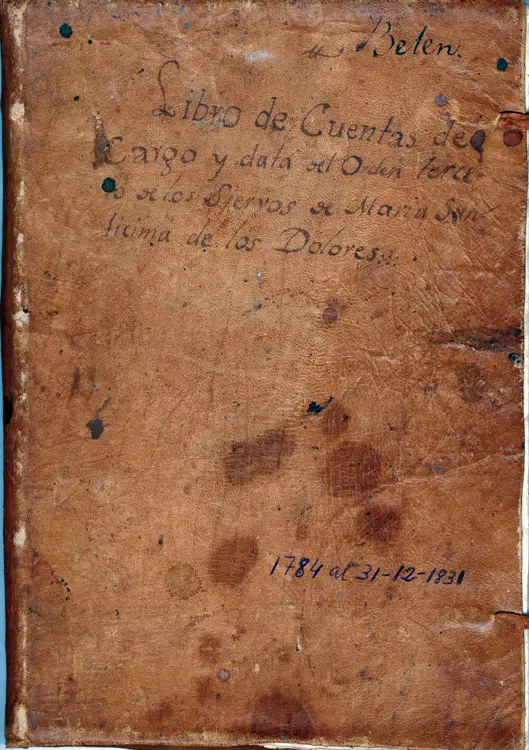 Belen.
Libro de Cuentas de
Cargo y data del Orden terce
ro de los Siervos de Maria San
ticima de los Dolores.
1784 al 31-12-1831